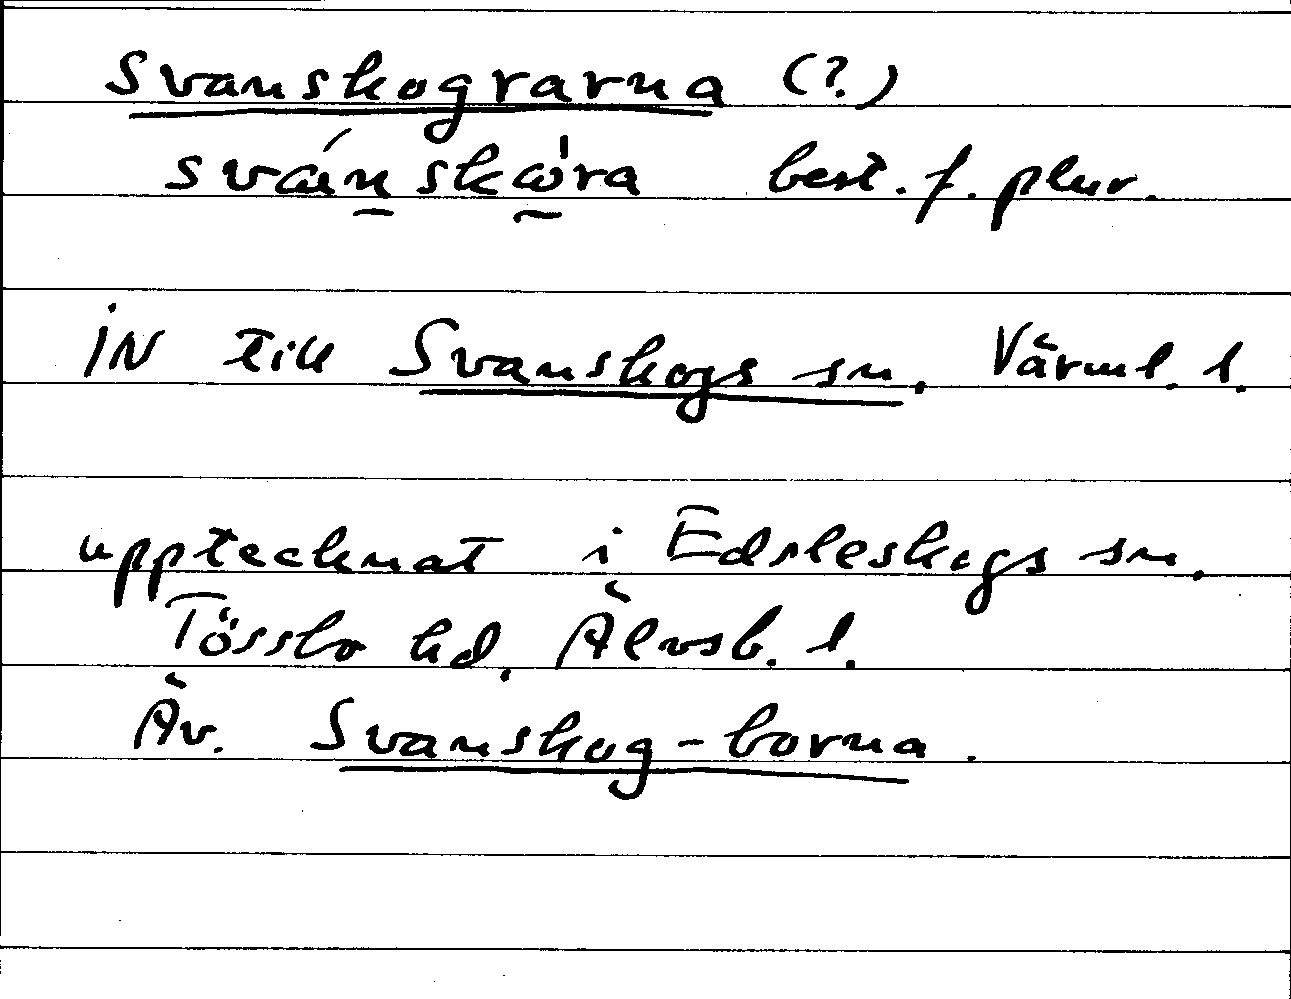 Svanskograrna (?)
svánskὼra best. f. plur.
IN till Svanskogs sn. Värml. l.
upptecknat i Edsleskogs sn.
Tössbo hd. Älvsb. l.
Äv. Svanskog-borna.